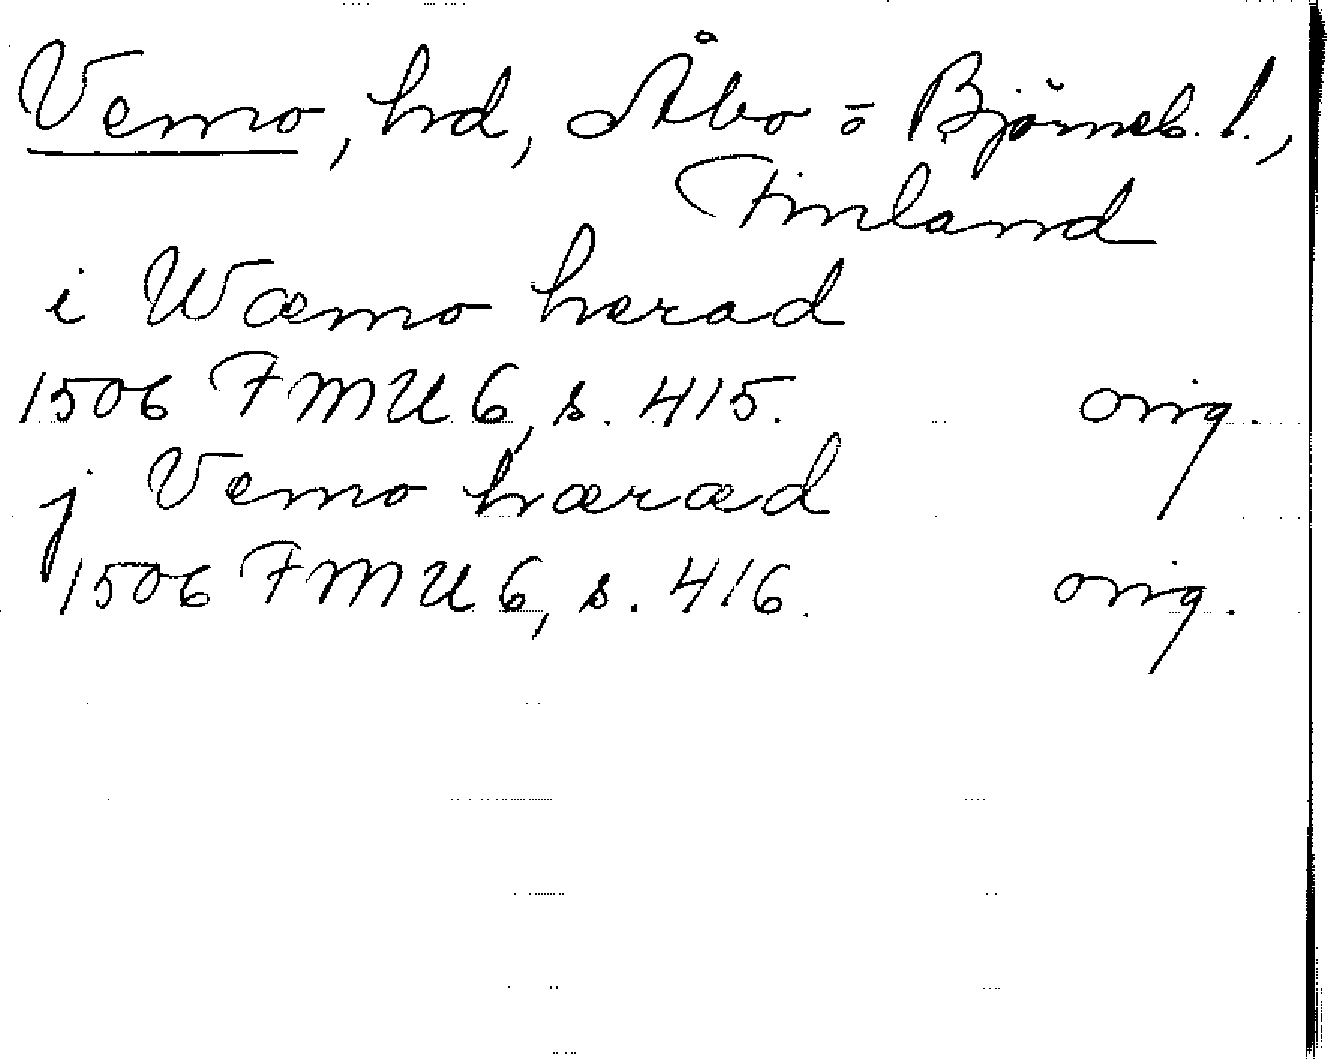 Vemo, hd, Åbo o Björneb. l.,
Finland
i Wæmo herad
1506 FMU 6, s. 415. orig.
j Vemo hæræd
1506 FMU 6, s. 416. orig.